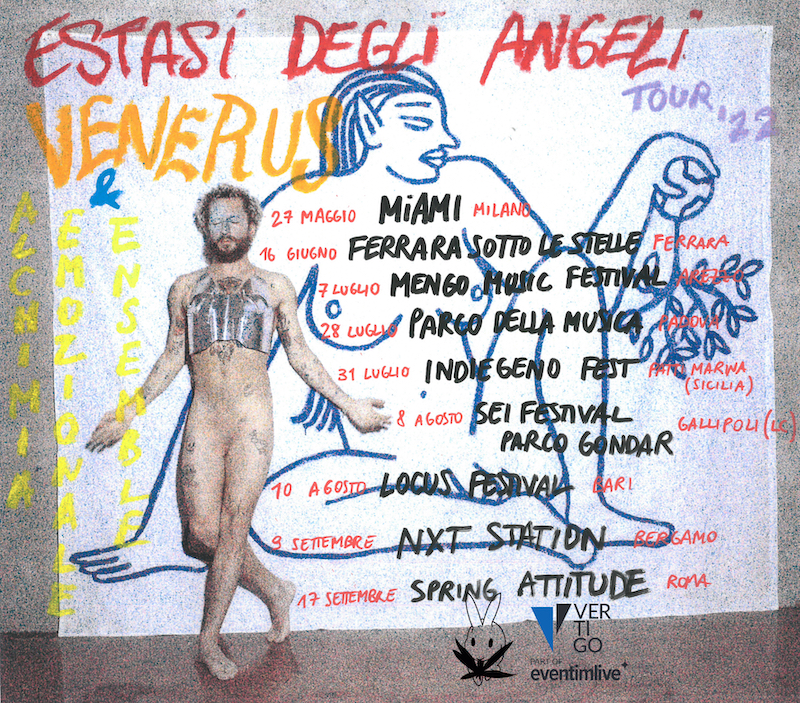 ESTASI DEGLI ANGELI
TOUR '22
VENERUS
&
ALCHIMIA
EMOZIONALE
ENSEMBLE
27 MAGGIO MiAMI MILANO
16 GIUGNO FERRARA SOTTO LE STELLE FERRARA
7 LUGLIO MENGO MUSIC FESTIVAL AREZZO
28 LUGLIO PARCO DELLA MUSICA PADOVA
31 LUGLIO INDIEGENO FEST PATTI MARINA
(SICILIA)
8 AGOSTO SEI FESTIVAL GALLIPOLI (LE)
PARCO GONDAR
10 AGOSTO LOCUS FESTIVAL BARI
9 SETTEMBRE NXT STATION BERGAMO
17 SETTEMBRE SPRING ATTITUDE ROMA
VER
TI
GO
PART OF
eventimlive